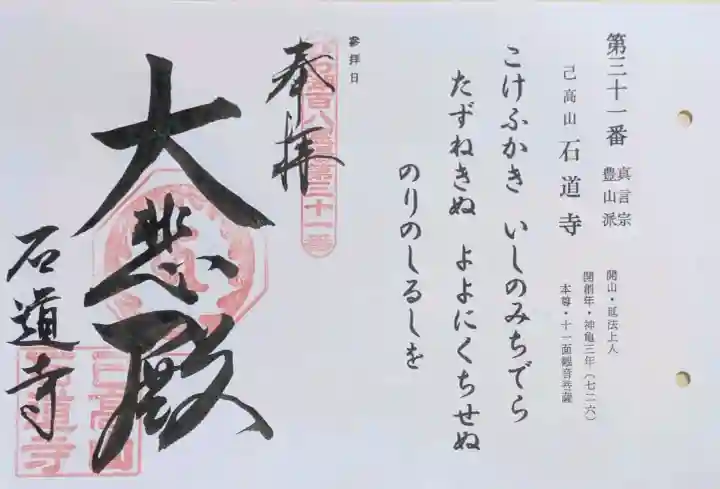 第三十一番 真言宗
豊山派
己高山 石道寺
開山・延法上人
開創年・神亀三年(七二六)
本尊・十一面観音菩薩
こけふかき いしのみちでら
たずねきぬ よよにくちせぬ
のりのしるしを
参拝日
奉拝
百八霊場第三十一番
大悲殿
石道寺
己高山
石道寺